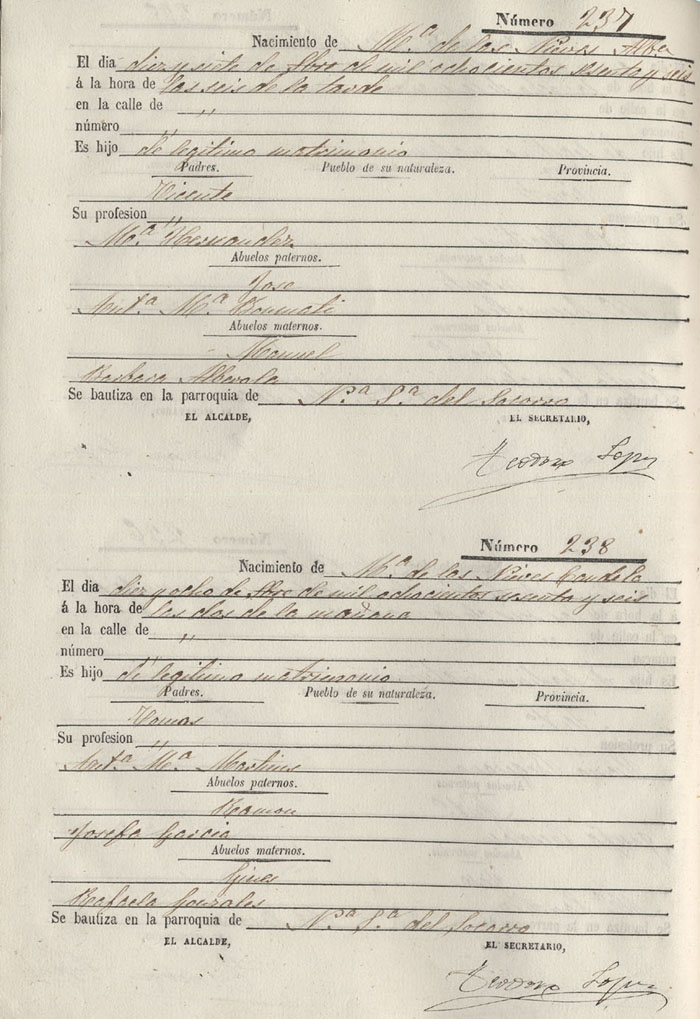 Número 237
Nacimiento de Mª de las Nieves
El dia diez y siete de Sbre de mil ochocientos sesenta y seis
á la hora de las seis de la tarde
en la calle de "
número "
Es hijo de legitimo matrimonio
Padres. Pueblo de su naturaleza. Provincia.
Vicente
Su profesion "
Mª Hernandez
Abuelos paternos.
Jose
Antª Mª
Abuelos maternos.
Manuel
Barbara Alberola
Se bautiza en la parroquia de Nª Sª del Socorro
EL ALCALDE, EL SECRETARIO,
Teodoro Lopez
Número 238
Nacimiento de Mª de las Nieves Candela
El dia diez y ocho de Sbre de mil ochocientos sesenta y seis
á la hora de las dos de la mañana
en la calle de "
número "
Es hijo de legitimo matrimonio
Padres. Pueblo de su naturaleza. Provincia.
Tomas
Su profesion "
Antª Mª Martines
Abuelos paternos.
Ramon
Josefa Garcia
Abuelos maternos.
Gines
Rafaela Gonzales
Se bautiza en la parroquia de Nª Sª del Socorro
EL ALCALDE, EL SECRETARIO,
Teodoro Lopez